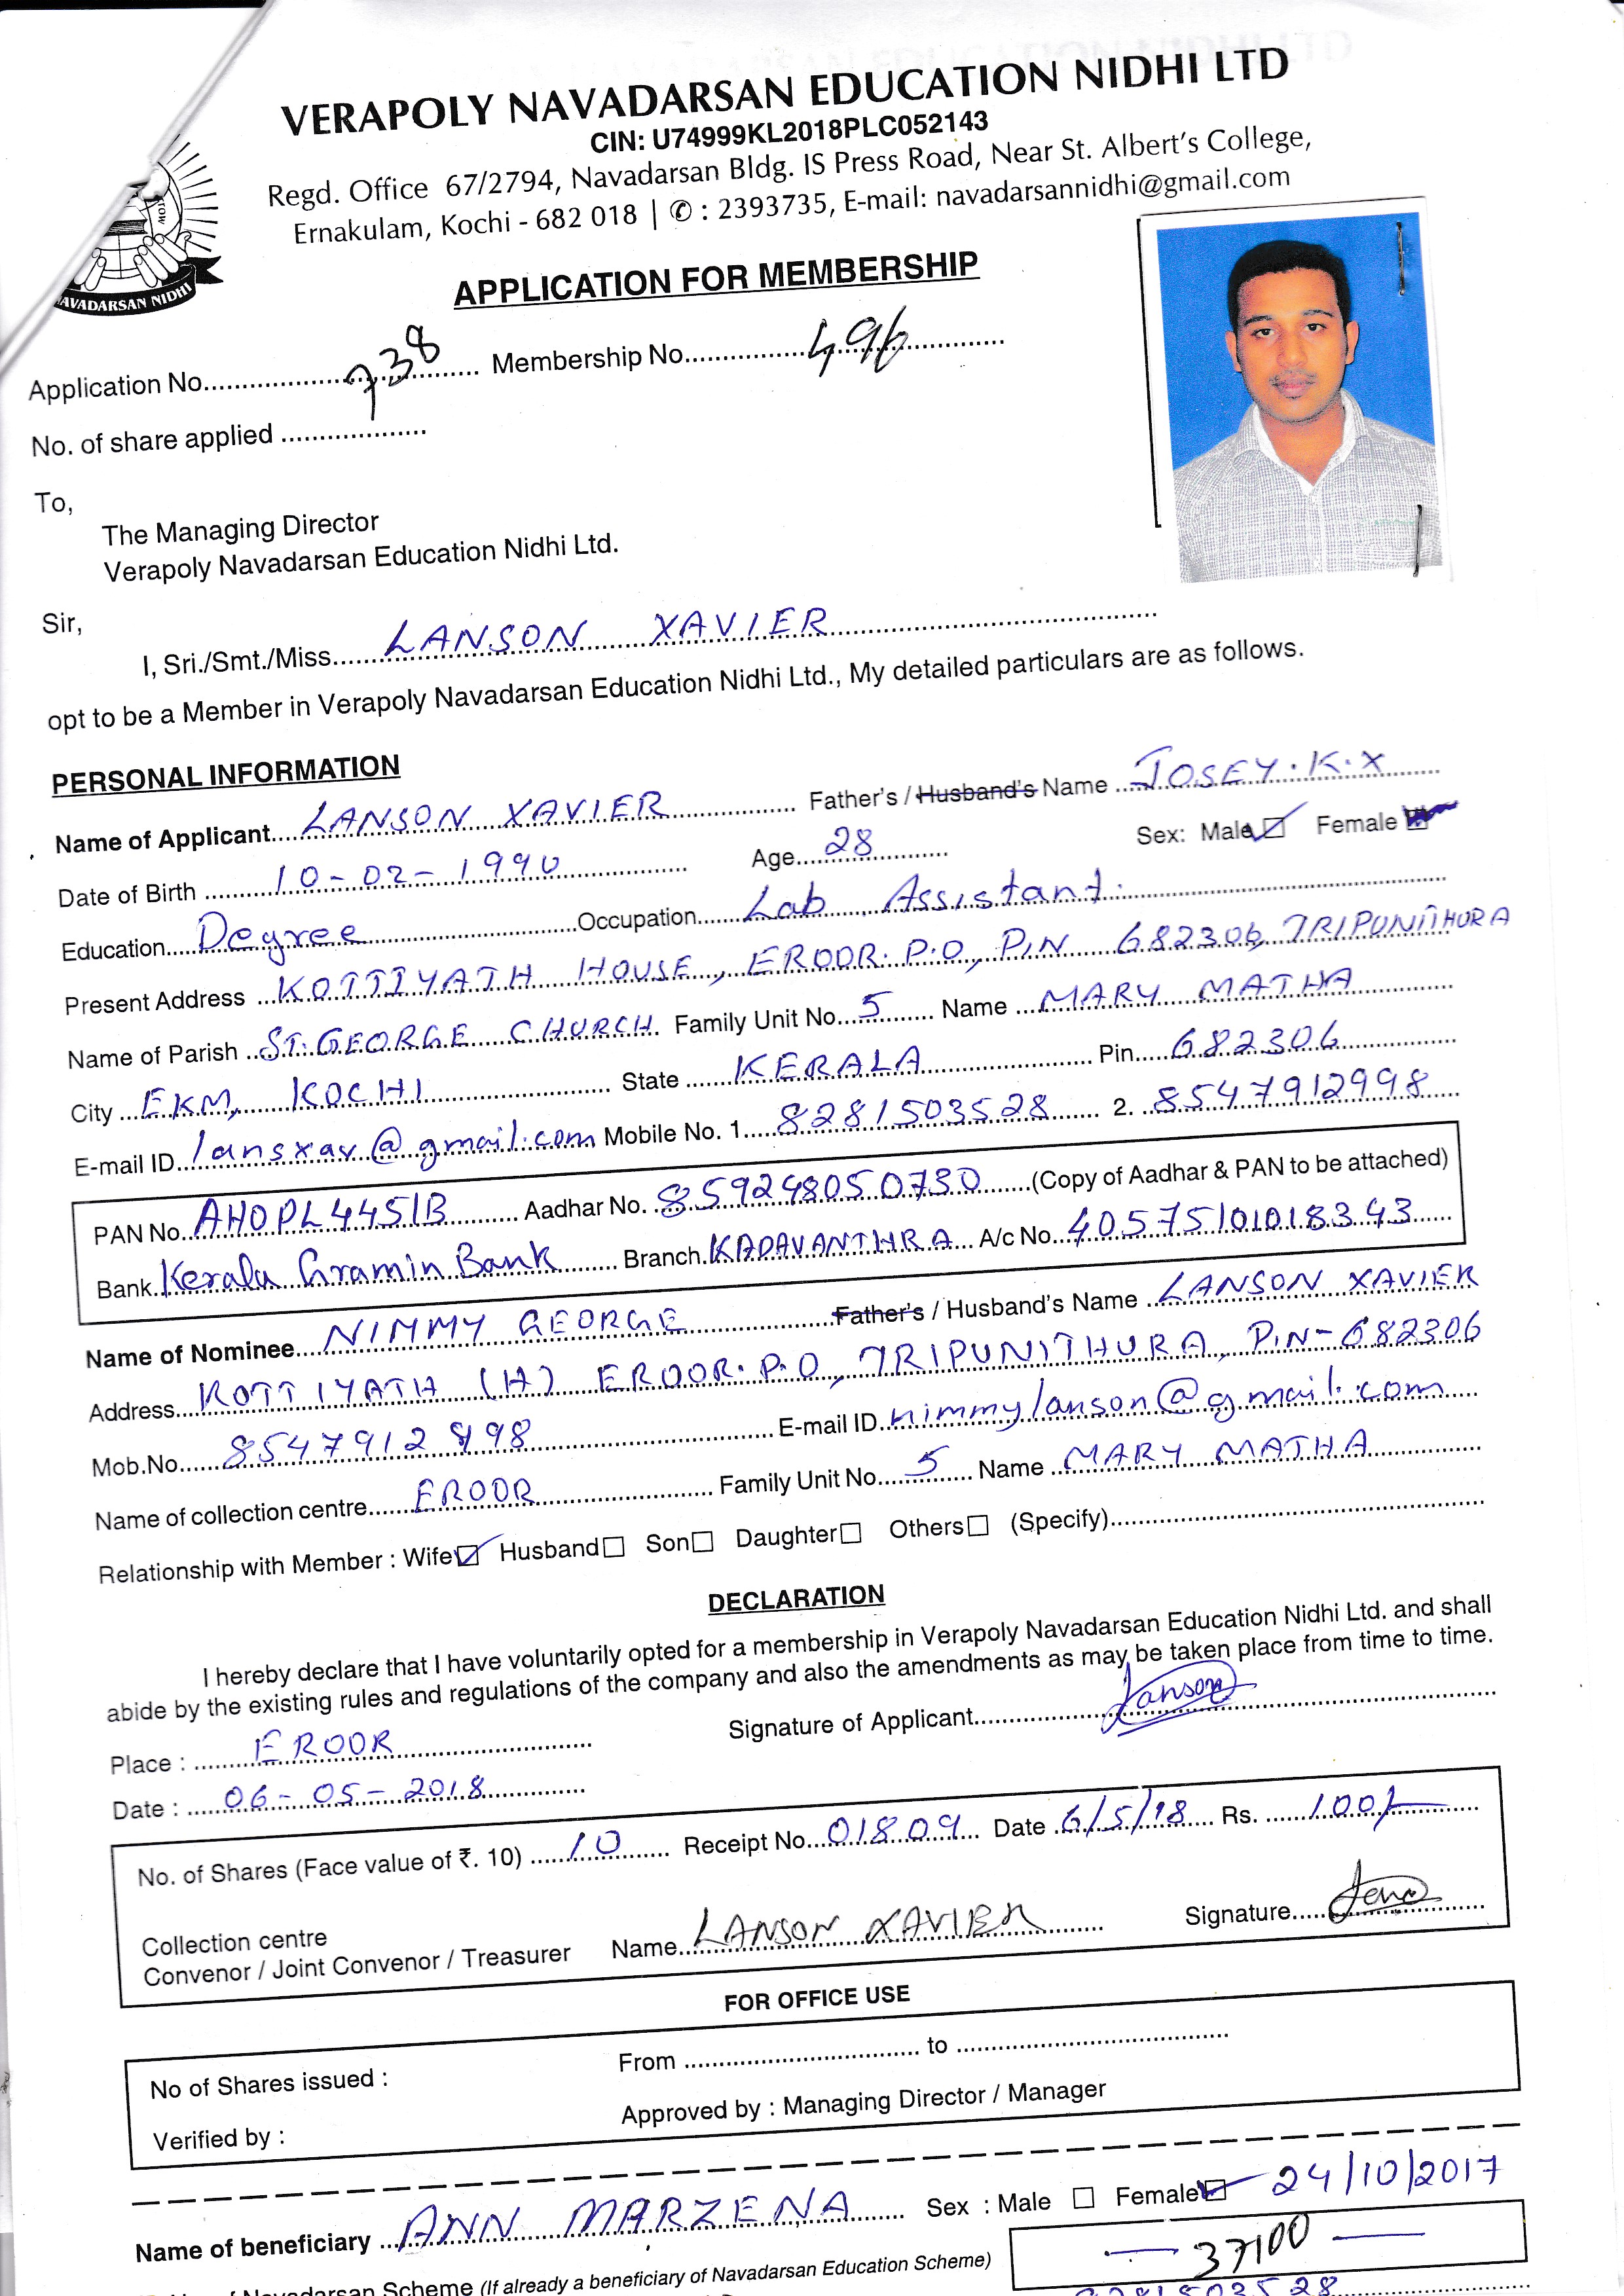 VERAPOLY NAVADARSAN EDUCATION NIDHI LTD
CIN: U74999KL2018PLC052143
Regd. Office 67/2794, Navadarsan Bldg. IS Press Road, Near St. Albert's College,
Ernakulam, Kochi - 682 018 | ✆ : 2393735, E-mail: navadarsannidhi@gmail.com
AVADARSAN NIDHI
APPLICATION FOR MEMBERSHIP
Application No. 738 Membership No. 496
No. of share applied
To,
The Managing Director
Verapoly Navadarsan Education Nidhi Ltd.
Sir,
I, Sri./Smt./Miss. LANSON XAVIER
opt to be a Member in Verapoly Navadarsan Education Nidhi Ltd., My detailed particulars are as follows.
PERSONAL INFORMATION
Name of Applicant. LANSON XAVIER Father's / Husband's Name JOSEY.K.X
Date of Birth 10-02-1990 Age. 28 Sex: Male ☑ Female
Education. Degree Occupation. Lab Assistant.
Present Address KOTTIYATH HOUSE, EROOR.P.O, PIN 682306, TRIPUNITHURA
Name of Parish ST.GEORGE CHURCH. Family Unit No. 5 Name MARY MATHA
City EKM, KOCHI State KERALA Pin. 682306
E-mail ID. lansxav@gmail.com Mobile No. 1. 8281503528 2. 8547912998
PAN No. AHOPL4451B Aadhar No. 859248050730 (Copy of Aadhar & PAN to be attached)
Bank. Kerala Gramin Bank Branch. KADAVANTHRA A/c No. 40575101018343
Name of Nominee NIMMY GEORGE Father's / Husband's Name LANSON XAVIER
Address. KOTTIYATH (H) EROOR.P.O, TRIPUNITHURA, PIN-682306
Mob.No. 8547912998 E-mail ID. nimmylanson@gmail.com
Name of collection centre. EROOR Family Unit No. 5 Name MARY MATHA
Relationship with Member : Wife ☑ Husband ☐ Son ☐ Daughter ☐ Others ☐ (Specify)
DECLARATION
I hereby declare that I have voluntarily opted for a membership in Verapoly Navadarsan Education Nidhi Ltd. and shall
abide by the existing rules and regulations of the company and also the amendments as may be taken place from time to time.
Signature of Applicant. Lanson
Place : EROOR
Date : 06-05-2018
No. of Shares (Face value of ₹. 10) 10 Receipt No. 01809 Date 6/5/18 Rs. 100/-
Collection centre
Convenor / Joint Convenor / Treasurer Name. LANSON XAVIER Signature.
FOR OFFICE USE
No of Shares issued : From to
Verified by : Approved by : Managing Director / Manager
Name of beneficiary ANN MARZENA Sex : Male ☐ Female ☑ 24/10/2017
37100
Navadarsan Scheme (If already a beneficiary of Navadarsan Education Scheme)